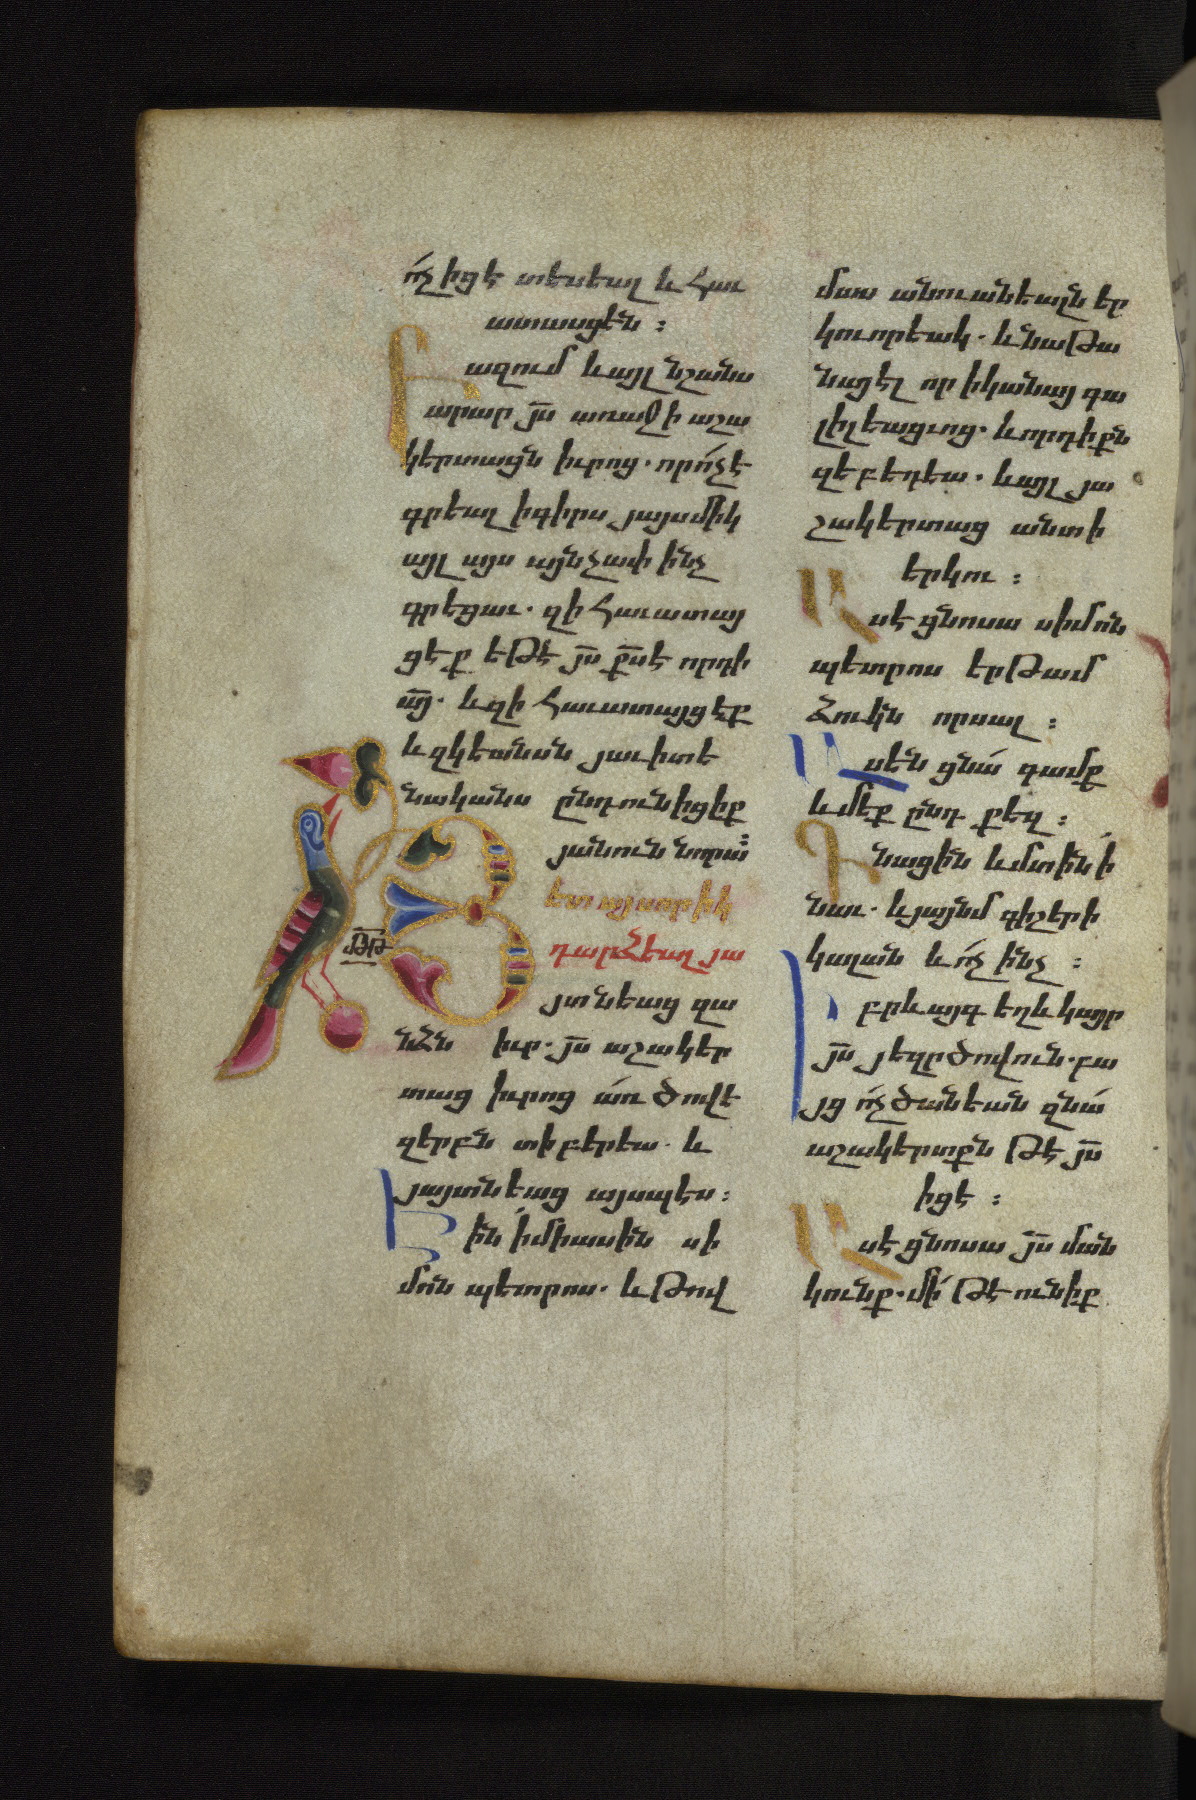 ո՛չ իցէ տեսեալ և հաւ
ատասցէն ։
Բազում և այլ նշանս
արար յս առաջի աշա
կերտացն իւրոց. որ ո՛չ է
գրեալ ի գիրս յայսմիկ
այլ այս այնչափ ինչ
գրեցաւ. զի հաւատայ
ցէք եթէ յս քսէ որդի
այ. և զի հաւատայցէք
և զկեանսն յաւիտե
նականս ընդունիցիք
յանուն նորա։
Յետ այսորիկ
դարձեալ յա
յտնեաց զա
նձն իւր. յս աշակեր
տաց իւրոց առ ծովէ
զերբն տիբերեա. և
յայտնեաց այսպէս ։
Էին ի միասին սի
մոն պետրոս. և թով
մաս անուանեալն եր
կուորեակ. և նաթա
նայէլ որ ի կանայ գա
լիլեացւոց. և որդիքն
զեբեդեա. և այլ յա
շակերտաց անտի
երկու ։
Ասէ ցնոսա սիմոն
պետրոս երթամ
ձուկն որսալ ։
Ասեն ցնա՛ գամք
և մեք ընդ քեզ ։
Ելնացին և մտին ի
նաւ. և յայնմ գիշերի
կալան և ո՛չ ինչ ։
Իբրև այգ եղև կայր
յս յեզր ծովուն. բա
յց ո՛չ ծանեան զնա՛
աշակերտքն թէ յս
իցէ ։
Ասէ ցնոսա յս ման
կունք. մի՛ թէ ունիք